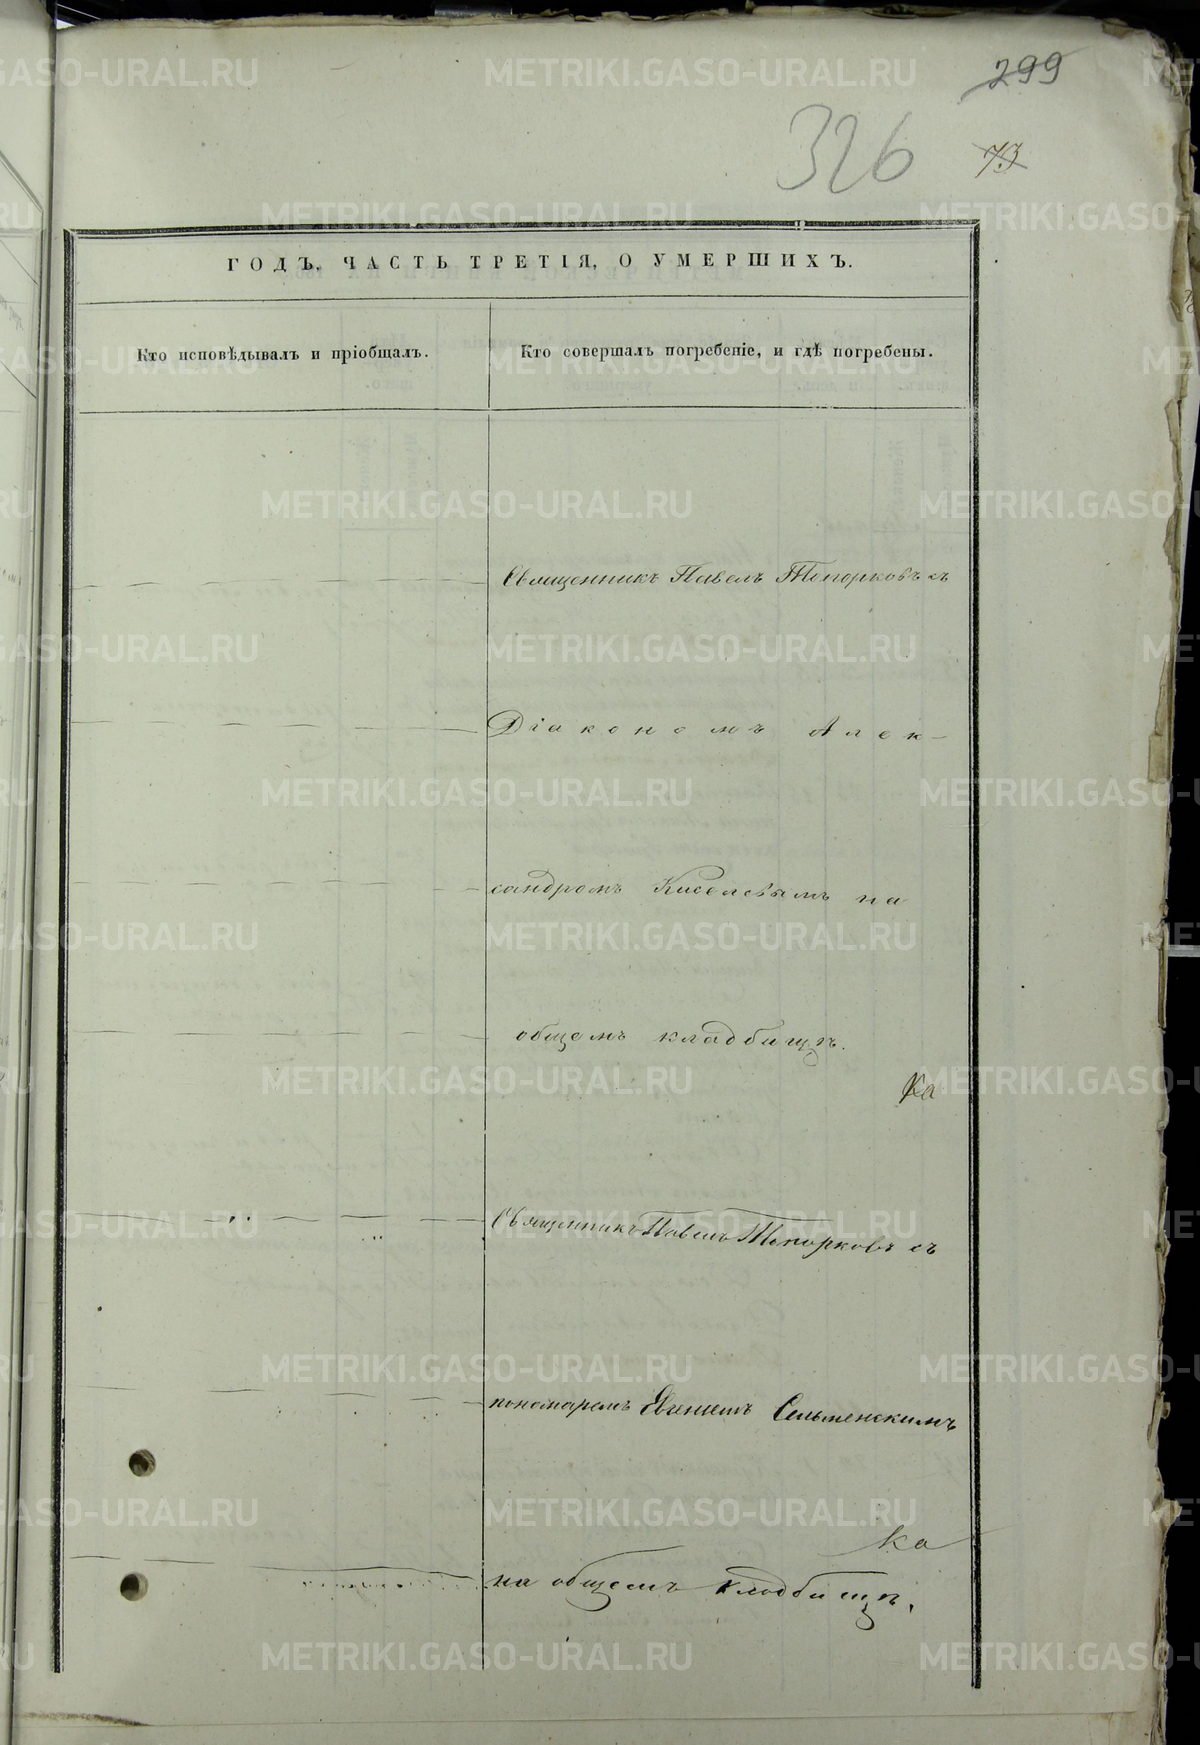 299
326
73
ГОДЪ, ЧАСТЬ ТРЕТІЯ, О УМЕРШИХЪ.
Кто исповѣдывалъ и пріобщалъ.
Кто совершалъ погребеніе, и гдѣ погребены.
Священникъ Павелъ Топорковъ съ
Діакономъ Алек-
сандромъ Киселевымъ на
общемъ кладбищѣ.
Ка
Священникъ Павелъ Топорковъ съ
пономаремъ Сельменскимъ
ка
на общемъ кладбищѣ.
METRIKI.GASO-URAL.RU